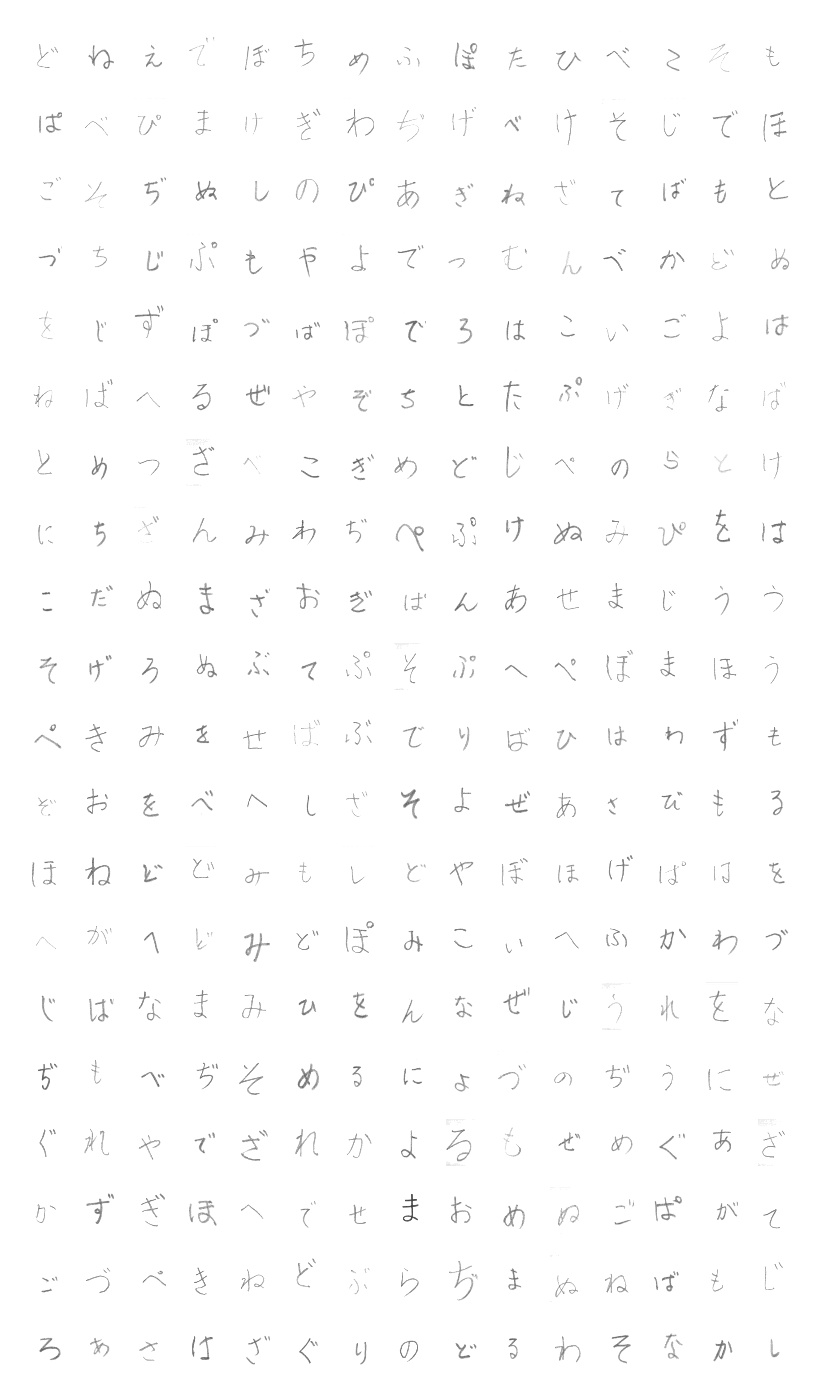 どねえでぼちめふぽたひべこそも
ぱべぴまけぎわぢげべけそじでほ
ごそぢぬしのぴあぎねざてばもと
づちじぷもやよでっむんべかどぬ
をじずぽづばぽでろはこいごよは
ねばへるぜやぞちとたぷげぎなば
とめつざべこぎめどじぺのらとけ
にちざんみわぢぺぷけぬみぴをは
こだぬまざおぎばんあせまじうう
そげろぬぶてぷそぷへぺぼまほう
ぺきみをせばぶでりばひはわずも
ぞおをべへしざそよぜあさびもる
ほねどどみもしどやぼほげぱはを
へがへどみどぽみこいへふかわづ
じばなまみひをんなぜじうれをな
ぢもべぢそめるにょづのぢうにぜ
ぐれやでざれかよるもぜめぐあざ
かずぎほへでせまおめぬごぱがて
ごづぺきねどぶらぢまぬねばもじ
ろあさはざぐりのどるわそなかし